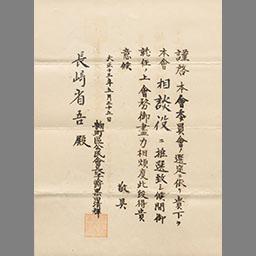 謹啓 本會委員會ノ選定ニ依リ貴下ヲ
本會 相談役 ニ推選致シ候間御
就任ノ上會務御盡力相煩度此段得貴
意候 敬具
大正十三年五月二十五日
麹町區公民會
長崎省吾殿